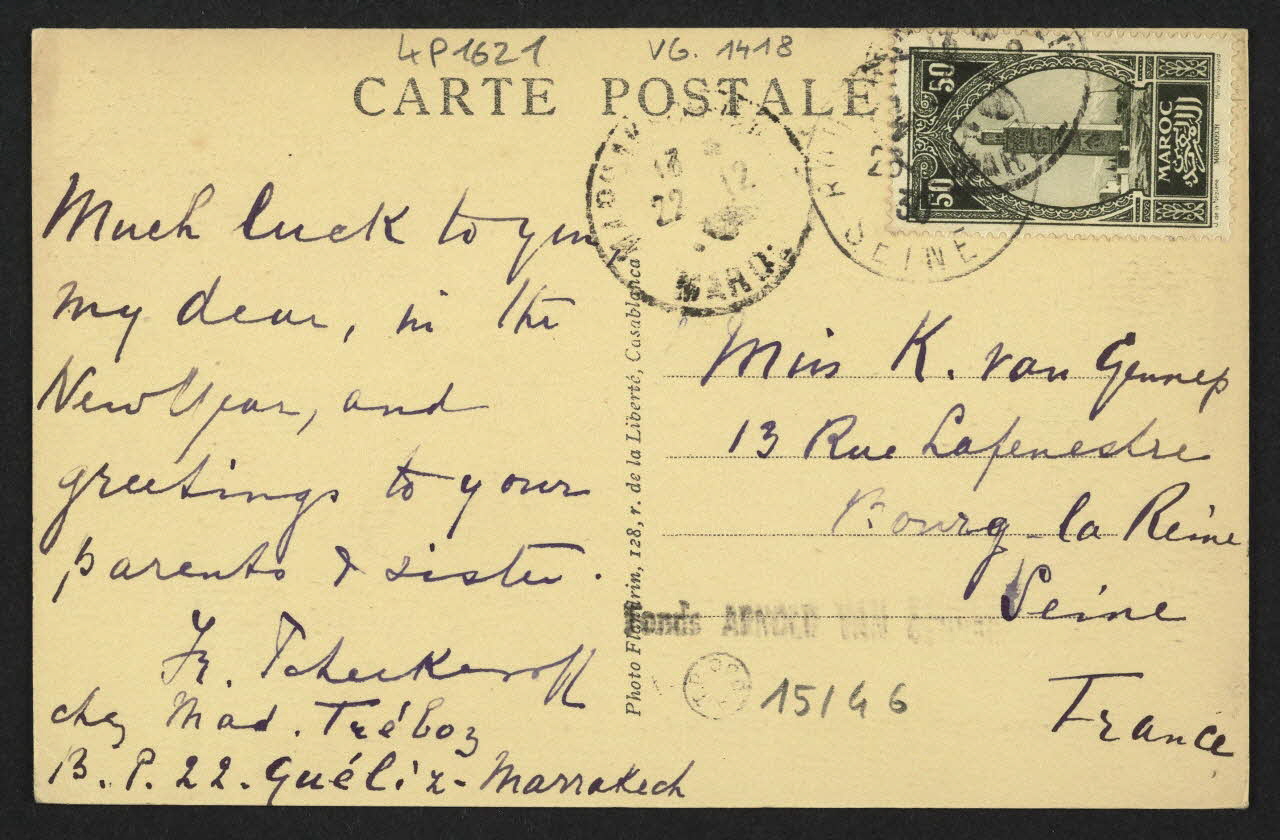 4P1621 VG. 1418
CARTE POSTALE
50 50
MAROC
المغرب
22 12
MAROC
SEINE
Much luck to you
my dear, in the
New Year, and
greetings to your
parents & sister.
chez Mad. Tréboz
B. P. 22. Guéliz - Marrakech
Photo Flandrin, 128, r. de la Liberté, Casablanca
Miss K. van Gennep
13 Rue Lafenestre
Bourg-la Reine
Seine
France
Fonds ARNOLD VAN GENNEP
15146